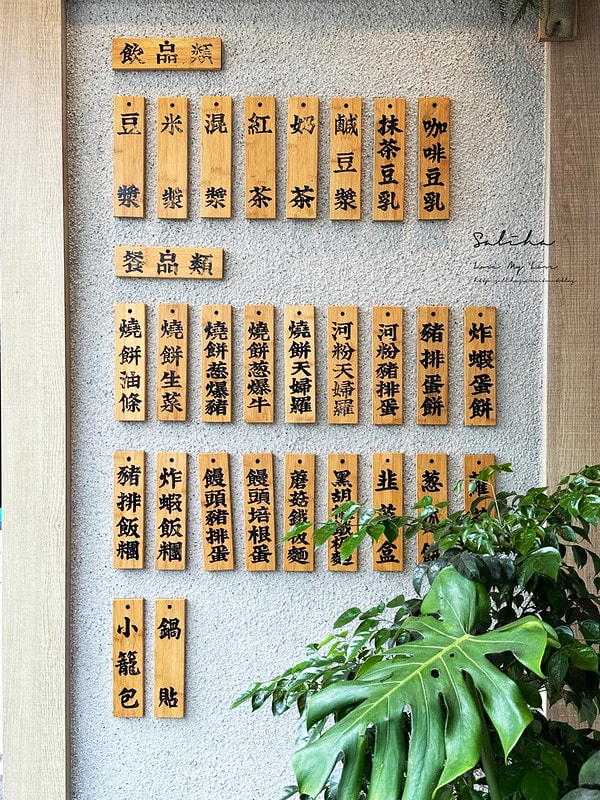 飲品類
豆漿
米漿
混漿
紅茶
奶茶
鹹豆漿
抹茶豆乳
咖啡豆乳
餐品類
燒餅油條
燒餅生菜
燒餅葱爆豬
燒餅葱爆牛
燒餅天婦羅
河粉天婦羅
河粉豬排蛋
豬排蛋餅
炸蝦蛋餅
豬排飯糰
炸蝦飯糰
饅頭豬排蛋
饅頭培根蛋
蘑菇鐵板麵
黑胡鐵板麵
韭菜盒
葱餅
小籠包
鍋貼
Saliha
Love My Love